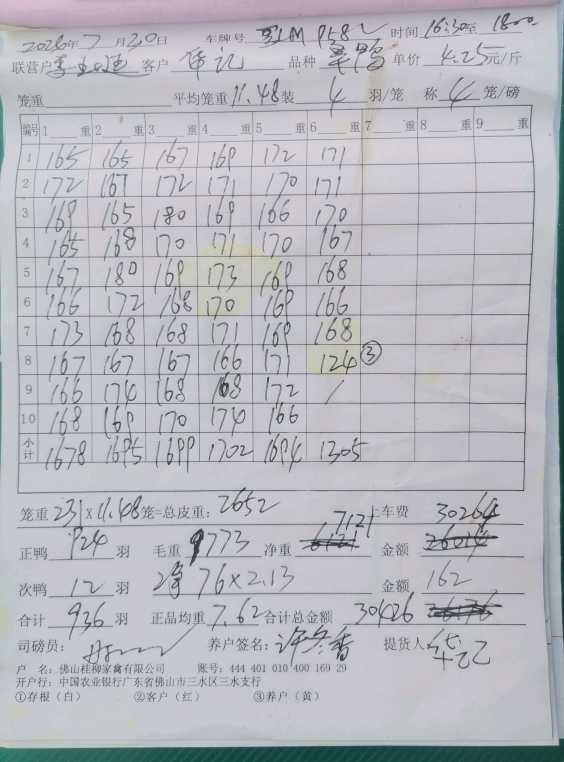 2026年7月30日 车牌号 P58 时间 16:30至 1800
联营户 客户 伟记 品种 单价 4.25元/斤
笼重 平均笼重 11.48 装 4 羽/笼 称 4 笼/磅
编号 1 重 2 重 3 重 4 重 5 重 6 重 7 重 8 重 9 重
1 165 165 167 169 172 171
2 172 167 172 171 170 171
3 169 165 180 169 166 170
4 165 168 170 171 170 167
5 167 180 169 173 169 168
6 166 172 168 170 169 166
7 173 168 168 171 169 168
8 167 167 167 166 171 124 ③
9 166 174 168 168 172 /
10 168 169 170 174 166
小计 1678 1695 1699 1702 1694 1305
笼重 231 x 11.48 笼=总皮重: 2652 上车费 30264
正鸭 924 羽 毛重 9773 净重 7121 金额
次鸭 12 羽 净 76×2.13 金额 162
合计 936 羽 正品均重 7.62 合计总金额 30426
司磅员: 养户签名: 许冬香 提货人
户 名: 佛山桂柳家禽有限公司 账号: 444 401 010 400 169 29
开户行: 中国农业银行广东省佛山市三水区三水支行
①存根(白) ②客户(红) ③养户(黄)